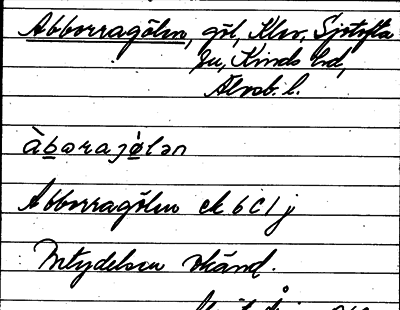 Abborragölen, göl, Klev, Sjötofta
Su, Kinds hd,
Älvsb. l.
àbɷrajø̀lən
Abborragölen ek 6C1j
Betydelsen okänd.